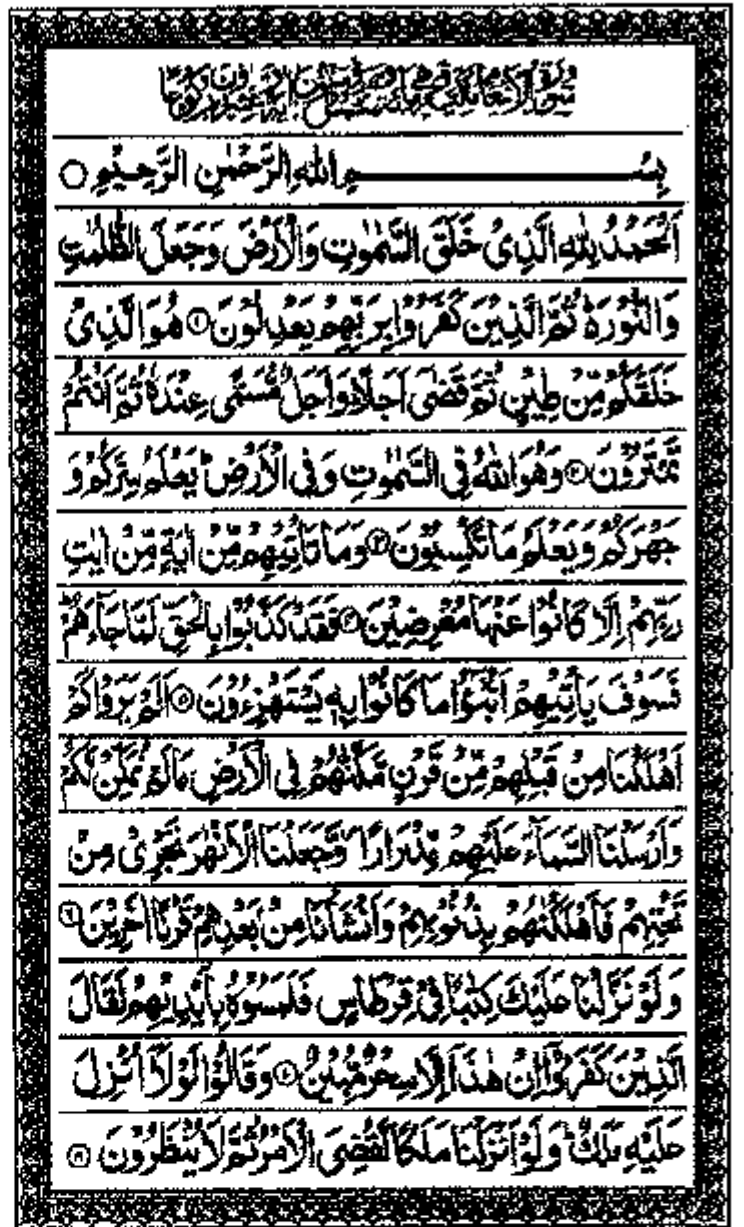 سورة الانعام مكية وهي مائة
بِسْمِ اللهِ الرَّحْمٰنِ الرَّحِيْمِ ○
اَلْحَمْدُ لِلّٰهِ الَّذِىْ خَلَقَ السَّمٰوٰتِ وَالْاَرْضَ وَجَعَلَ الظُّلُمٰتِ
وَالنُّوْرَ ۬ؕ ثُمَّ الَّذِيْنَ كَفَرُوْا بِرَبِّهِمْ يَعْدِلُوْنَ ① هُوَ الَّذِىْ
خَلَقَكُمْ مِّنْ طِيْنٍ ثُمَّ قَضٰۤى اَجَلًا ؕ وَاَجَلٌ مُّسَمًّى عِنْدَهٗ ثُمَّ اَنْتُمْ
تَمْتَرُوْنَ ② وَهُوَ اللهُ فِى السَّمٰوٰتِ وَفِى الْاَرْضِ ؕ يَعْلَمُ سِرَّكُمْ وَ
جَهْرَكُمْ وَيَعْلَمُ مَا تَكْسِبُوْنَ ③ وَمَا تَاْتِيْهِمْ مِّنْ اٰيَةٍ مِّنْ اٰيٰتِ
رَبِّهِمْ اِلَّا كَانُوْا عَنْهَا مُعْرِضِيْنَ ④ فَقَدْ كَذَّبُوْا بِالْحَقِّ لَمَّا جَآءَهُمْ ؕ
فَسَوْفَ يَاْتِيْهِمْ اَنْۢبٰٓؤُا مَا كَانُوْا بِهٖ يَسْتَهْزِءُوْنَ ⑤ اَلَمْ يَرَوْا كَمْ
اَهْلَكْنَا مِنْ قَبْلِهِمْ مِّنْ قَرْنٍ مَّكَّنّٰهُمْ فِى الْاَرْضِ مَا لَمْ نُمَكِّنْ لَّكُمْ
وَاَرْسَلْنَا السَّمَآءَ عَلَيْهِمْ مِّدْرَارًا ۪ وَّجَعَلْنَا الْاَنْهٰرَ تَجْرِىْ مِنْ
تَحْتِهِمْ فَاَهْلَكْنٰهُمْ بِذُنُوْبِهِمْ وَاَنْشَاْنَا مِنْۢ بَعْدِهِمْ قَرْنًا اٰخَرِيْنَ ⑥
وَلَوْ نَزَّلْنَا عَلَيْكَ كِتٰبًا فِىْ قِرْطَاسٍ فَلَمَسُوْهُ بِاَيْدِيْهِمْ لَقَالَ
الَّذِيْنَ كَفَرُوْۤا اِنْ هٰذَاۤ اِلَّا سِحْرٌ مُّبِيْنٌ ⑦ وَقَالُوْا لَوْلَاۤ اُنْزِلَ
عَلَيْهِ مَلَكٌ ؕ وَلَوْ اَنْزَلْنَا مَلَكًا لَّقُضِىَ الْاَمْرُ ثُمَّ لَا يُنْظَرُوْنَ ⑧